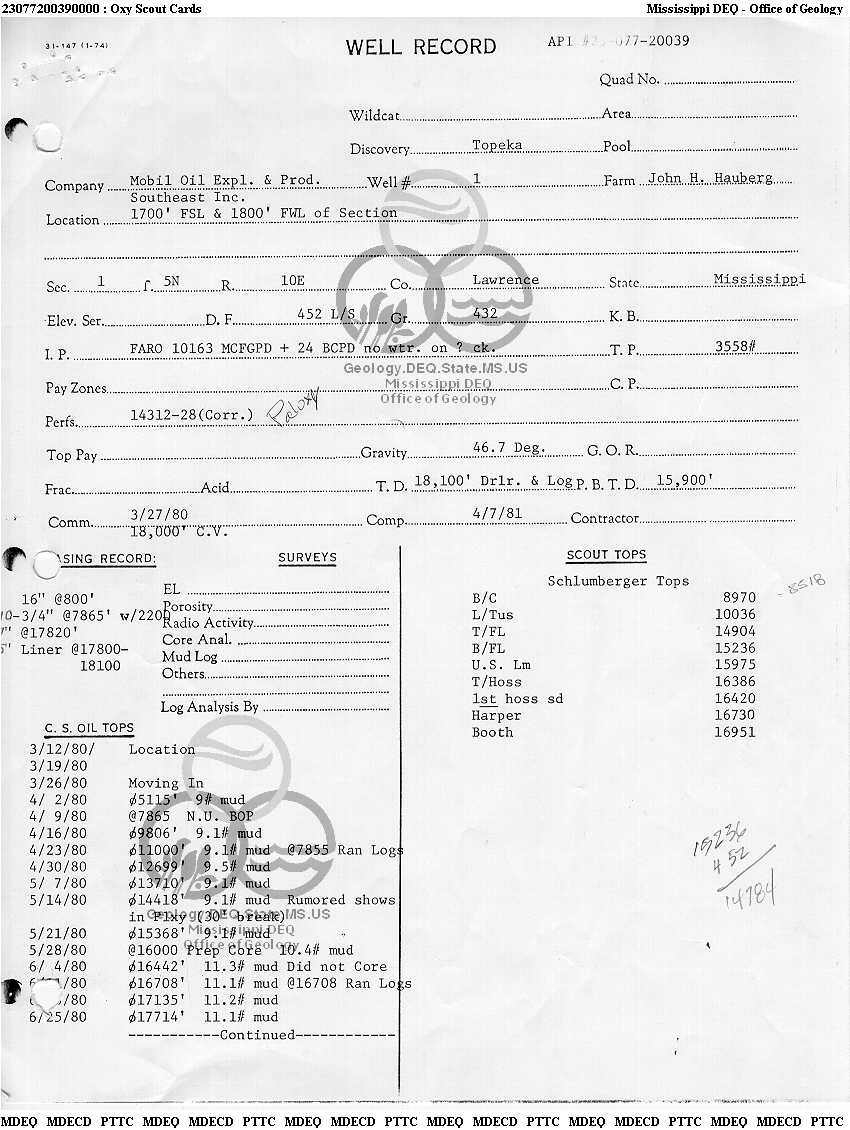 23077200390000 : Oxy Scout Cards
Mississippi DEQ - Office of Geology
31-147 (1-74)
WELL RECORD
API #23-077-20039
Quad No.
Wildcat
Area
Discovery Topeka
Pool
Company Mobil Oil Expl. & Prod. Southeast Inc.
Well# 1
Farm John H. Hauberg
Location 1700' FSL & 1800' FWL of Section
Sec. 1 T. 5N R. 10E Co. Lawrence State Mississippi
Elev. Ser. D. F. 452 L/S Gr. 432 K. B.
I. P. FARO 10163 MCFGPD + 24 BCPD no wtr. on ? ck. T. P. 3558#
Geology.DEQ.State.MS.US
Mississippi DEQ
Office of Geology
Pay Zones C. P.
Perfs. 14312-28(Corr.) Paloxy
Top Pay Gravity 46.7 Deg. G. O. R.
Frac. Acid T. D. 18,100' Drlr. & Log P. B. T. D. 15,900'
Comm. 3/27/80 Comp. 4/7/81 Contractor
18,000' C.V.
ASING RECORD:
16" @800'
10-3/4" @7865' w/2200
7" @17820'
5" Liner @17800-
18100
SURVEYS
EL
Porosity
Radio Activity
Core Anal.
Mud Log
Others
Log Analysis By
SCOUT TOPS
Schlumberger Tops
B/C 8970 -8518
L/Tus 10036
T/FL 14904
B/FL 15236
U.S. Lm 15975
T/Hoss 16386
1st hoss sd 16420
Harper 16730
Booth 16951
C. S. OIL TOPS
3/12/80/ Location
3/19/80
3/26/80 Moving In
4/ 2/80 ø5115' 9# mud
4/ 9/80 @7865 N.U. BOP
4/16/80 ø9806' 9.1# mud
4/23/80 ø11000' 9.1# mud @7855 Ran Logs
4/30/80 ø12699' 9.5# mud
5/ 7/80 ø13710' 9.1# mud
5/14/80 ø14418' 9.1# mud Rumored shows
in Plxy (30' break)
5/21/80 ø15368' 9.1# mud
5/28/80 @16000 Prep Core 10.4# mud
6/ 4/80 ø16442' 11.3# mud Did not Core
/80 ø16708' 11.1# mud @16708 Ran Logs
/80 ø17135' 11.2# mud
6/25/80 ø17714' 11.1# mud
-----------Continued------------
Geology.DEQ.State.MS.US
Mississippi DEQ
Office of Geology
15236
452
14784
MDEQ MDECD PTTC MDEQ MDECD PTTC MDEQ MDECD PTTC MDEQ MDECD PTTC MDEQ MDECD PTTC MDEQ MDECD PTTC